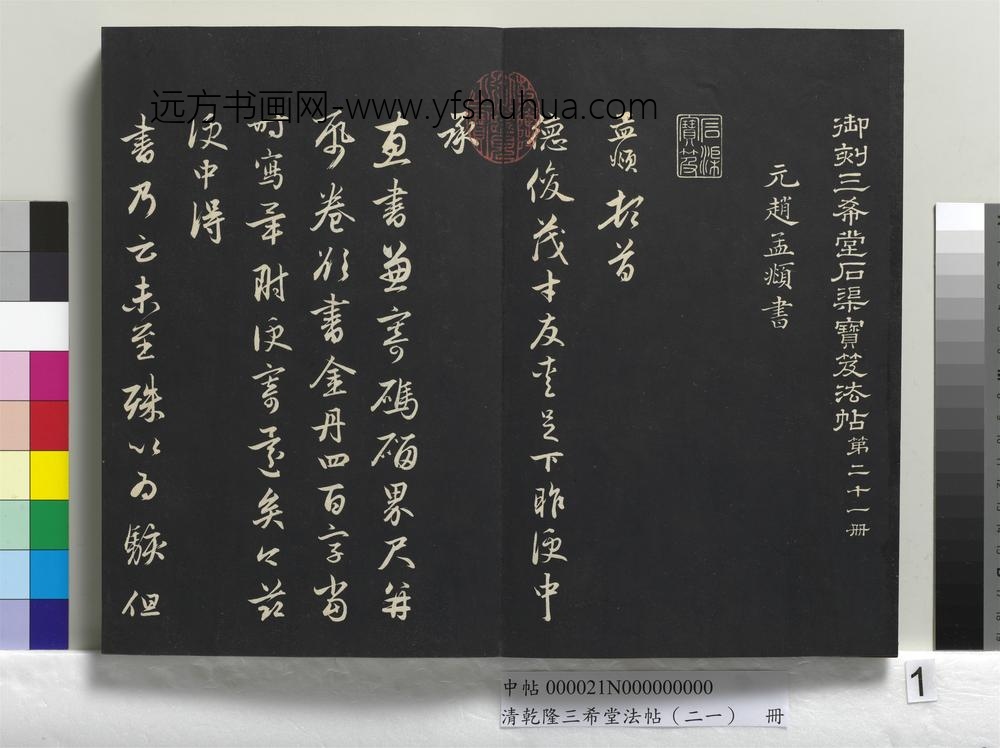 御刻三希堂石渠寶笈法帖 第二十一冊
元趙孟頫書
石渠寶笈
孟頫頓首
德俊茂才友愛足下昨便中
承
惠書兼寄碼碯界尺并
帋卷欲書金丹四百字當
時寫畢附便寄還矣今茲
便中得
書乃云未至殊以為駭但
远方书画网-www.yfshuhua.com
中帖 000021N000000000
清乾隆三希堂法帖（二一） 冊
1